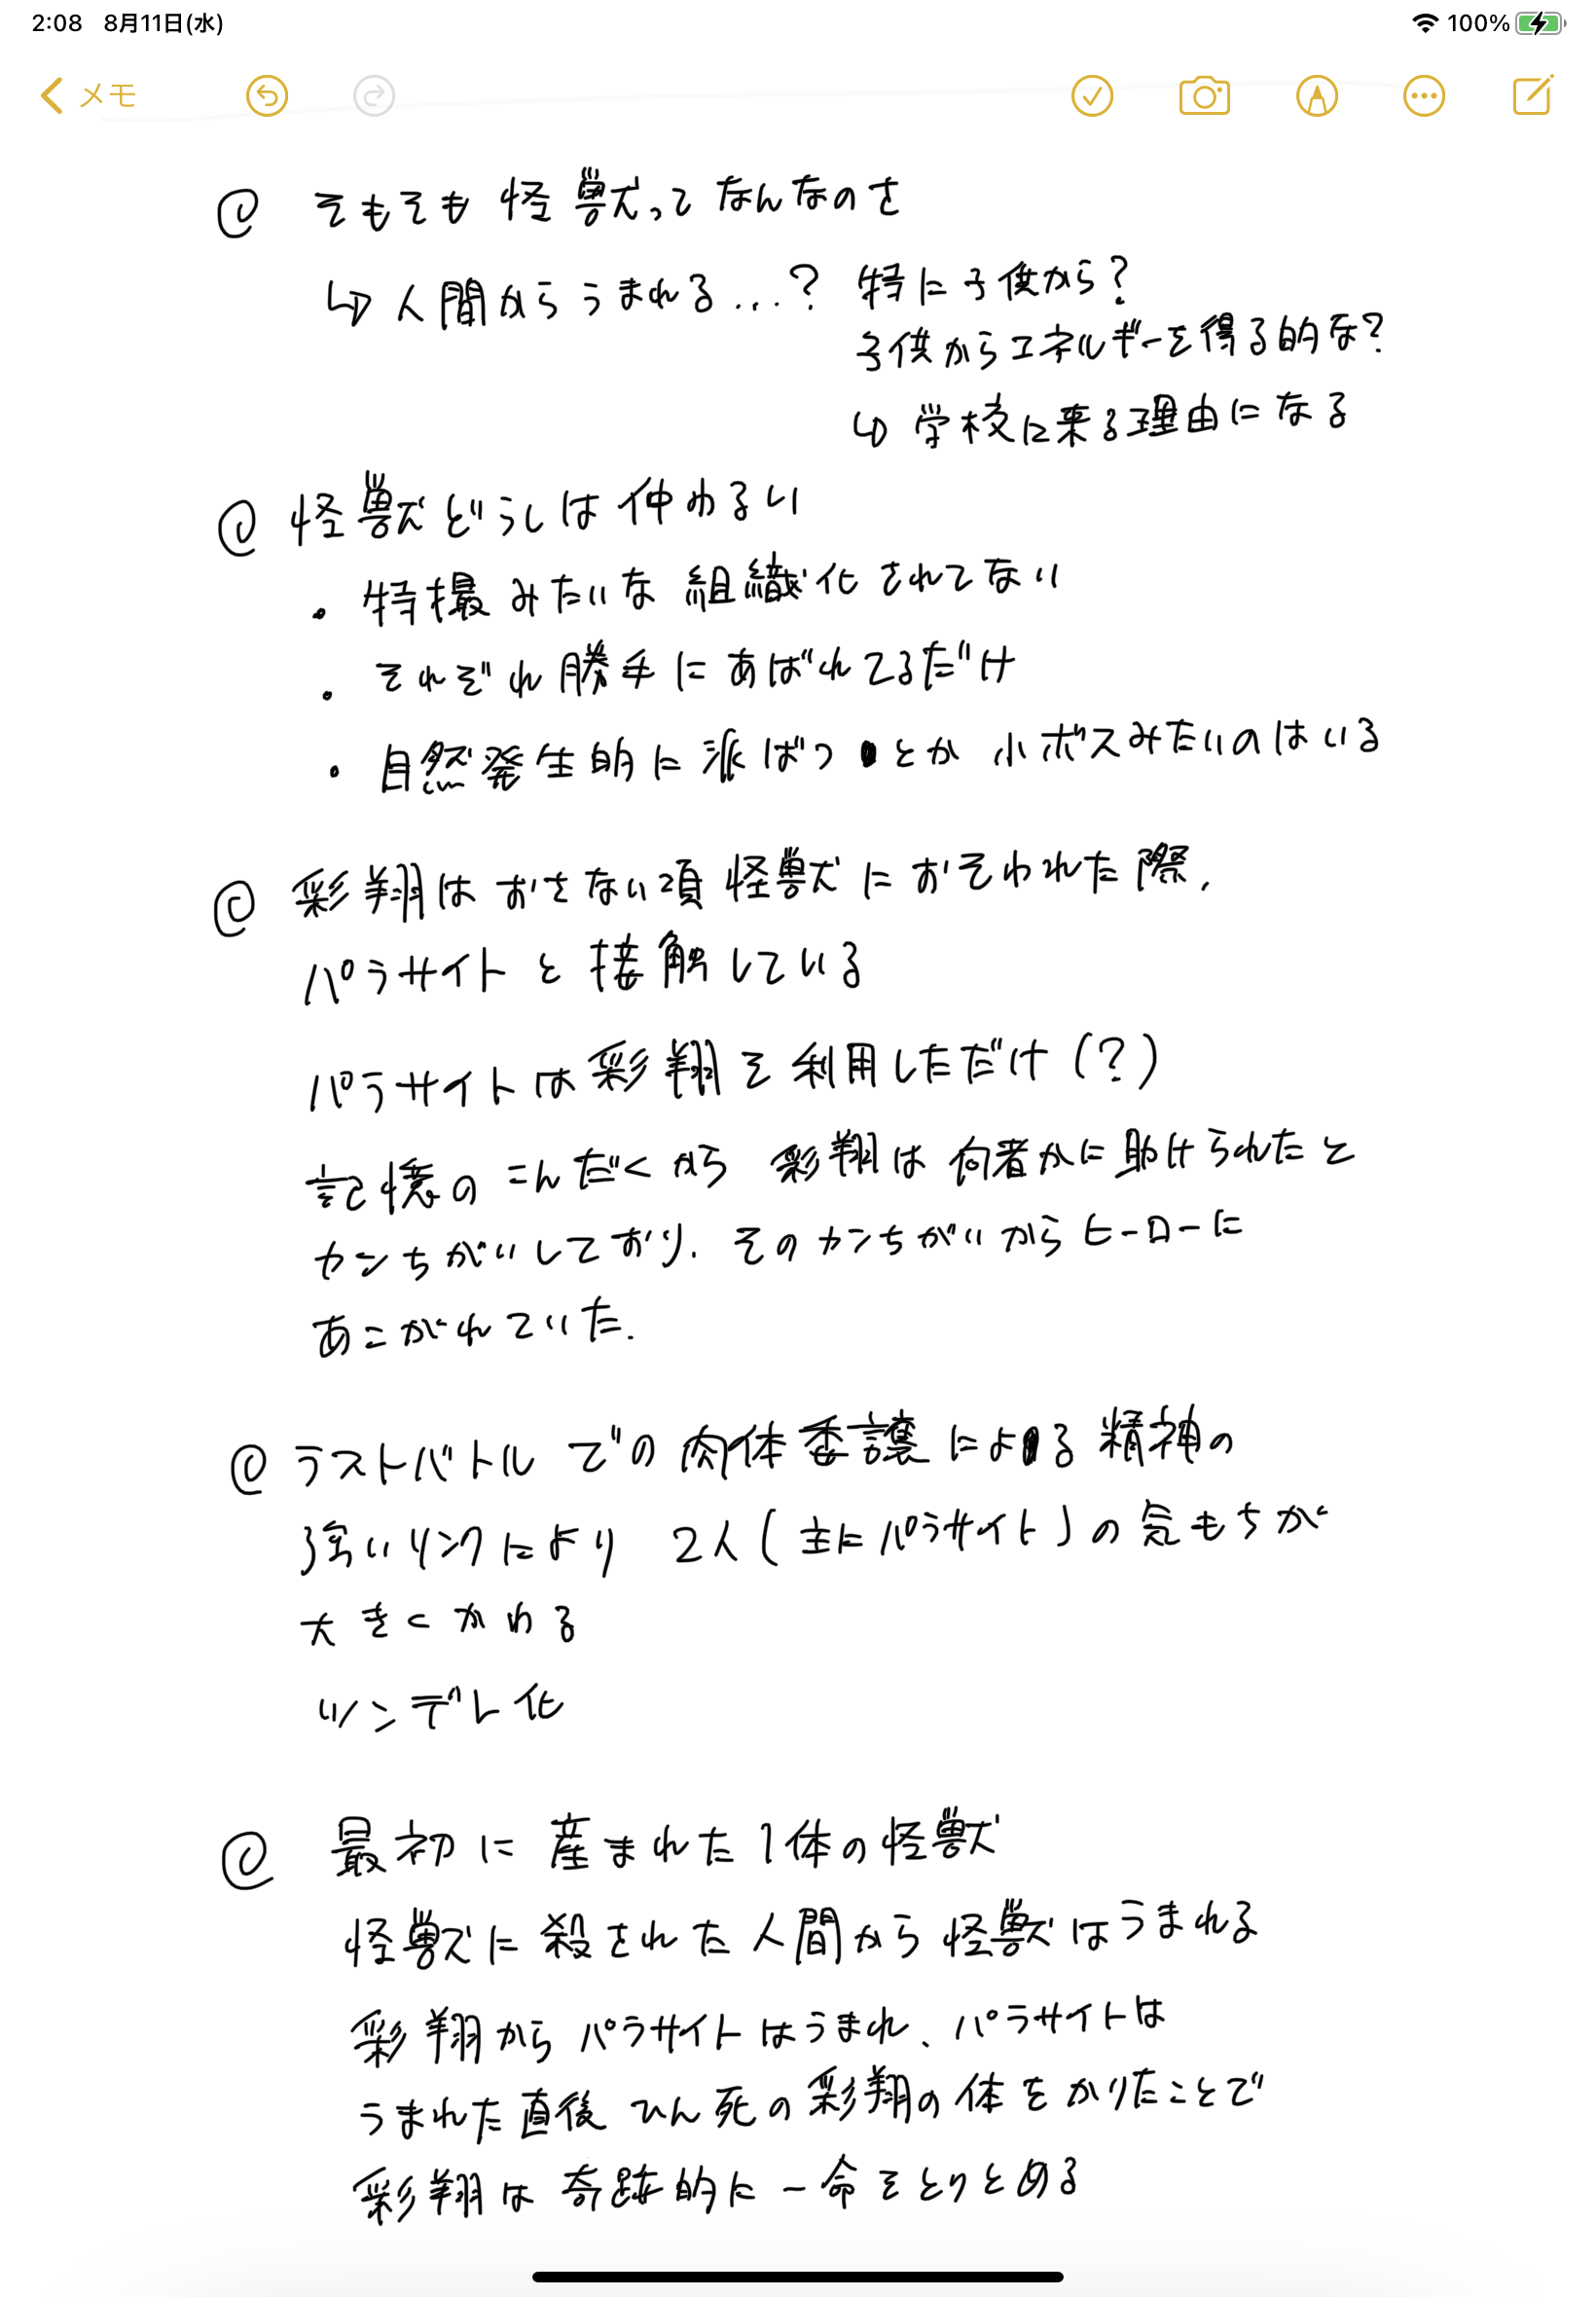 2:08 8月11日(水) 100%
メモ
@ そもそも怪獣ってなんなのさ
↳ 人間からうまれる…? 特に子供から?
子供からエネルギーを得る的な?
↳ 学校に来る理由になる
@ 怪獣どうしは仲わるい
・特撮みたいな組織化されてない
・それぞれ勝手にあばれてるだけ
・自然発生的に派ばつとか小ボスみたいのはいる
@ 彩翔はおさない頃怪獣におそわれた際、
パラサイトと接触している
パラサイトは彩翔を利用しただけ(?)
記憶のこんだくから彩翔は何者かに助けられたと
カンちがいしており、そのカンちがいからヒーローに
あこがれていた.
@ ラストバトルでの肉体委譲による精神の
強いリンクにより 2人(主にパラサイト)の気もちが
大きくかわる
ツンデレ化
@ 最初に産まれた1体の怪獣
怪獣に殺された人間から怪獣はうまれる
彩翔からパラサイトはうまれ、パラサイトは
うまれた直後ひん死の彩翔の体をかりたことで
彩翔は奇跡的に一命をとりとめる